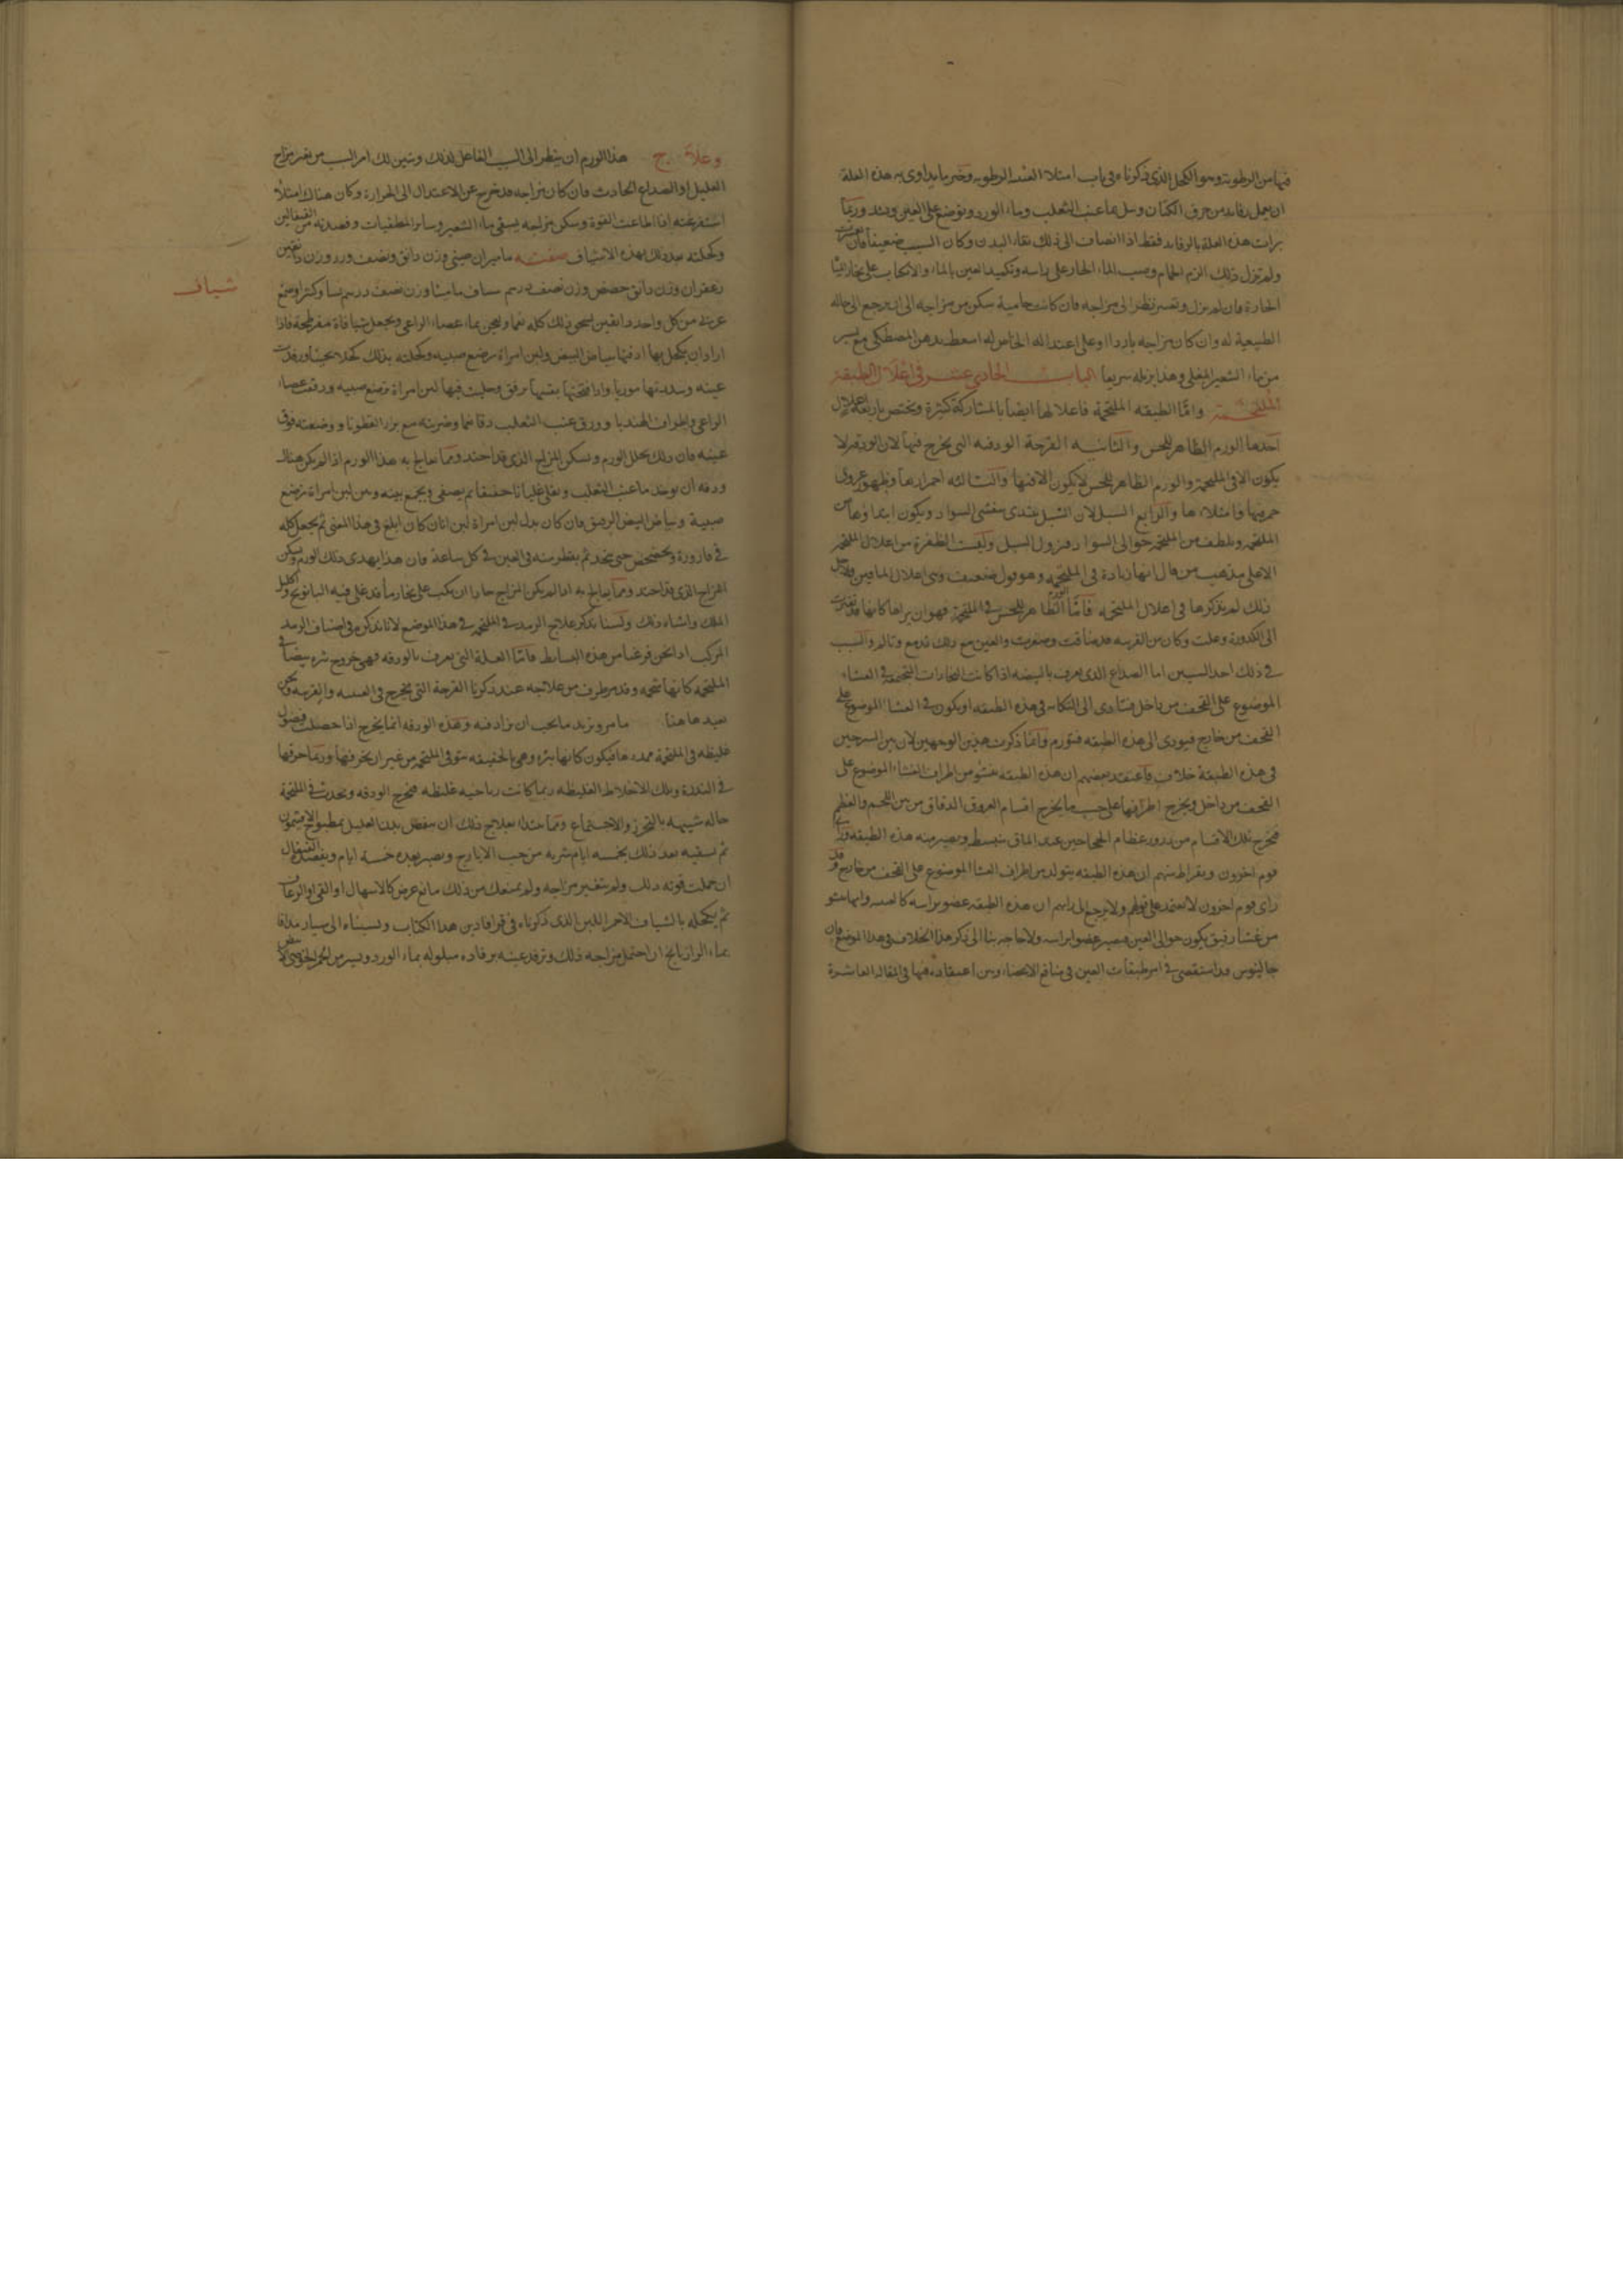 فيها من الرطوبة وهو الكحل الذي ذكرناه في باب امتلاء الغشاء الرطوبه وخير ما يداوى به هذه العلة
ان يعمل رفايد من خرق الكتان وتبل بماء عنب الثعلب وماء الورد وتوضع على العين وتشد وربما
برات هذه العلة بالرفايد فقط اذا انضاف الى ذلك نقاء البدن وكان السبب ضعيفا فان
ولم تزل ذلك الزم الحمام وصب الماء الحار على راسه وتكميد العين بالماء والانكباب على بخار المياه
الحارة فان لم يزل وتعسر نظر الى مزاجه فان كانت حامية سكن من مزاجه الى ان يرجع الى حاله
الطبيعية له وان كان مزاجه باردا او على اعتداله الخاص له اسعط بدهن المصطكى مع يسير
من ماء الشعير المغلي وهذا يزيله سريعا الباب الحادي عشر في اعلال الطبقة
الملتحمة واما الطبقه الملتحمة فاعلالها ايضا بالمشاركة كثيرة وتختص باربعة اعلال
احدها الورم الظاهر للحس والثانيه القرحة الوردقه التي يخرج فيها لان الودقه لا
يكون الا في الملتحمة والورم الظاهر للحس لا يكون الا فيها والثالثه احمرارها وظهور عروق
حمر فيها وامتلاءها والرابع السبل لان السبل عندي يغشى السواد ويكون ابتداؤها من
الملتحمة ويلطف من الملتحم حوالى السواد فيزول السبل وليست الظفرة من اعلال الملتحم
الا على مذهب من قال انها زيادة في الملتحمة وهو قول ضعيف وهي اعلال الماقين فلاجل
ذلك لم نذكرها في اعلال الملتحمه فاما الورم الظاهر للحس في الملتحمة فهو ان تراها كانها قد تغيرت
الى الكدورة وعلت وكان من القرنيه قد ضاقت وصغرت والعين مع ذلك تدمع وتالم والسبب
في ذلك احد السببين اما الصداع الذي يعرف بالبيضه اذا كانت البخارات المحتقنة في الغشاء
الموضوع على القحف من داخل فيتادى الى النكايه في هذه الطبقه او يكون في الغشا الموضوع على
القحف من خارج فيودى الى هذه الطبقه فتورم وانما ذكرت هذين الوجهين لان بين المشرحين
في هذه الطبقة خلاف فاعتقد بعضهم ان هذه الطبقه تنشو من اطراف الغشاء الموضوع على
القحف من داخل ويخرج اطرافها على حسب ما يخرج اقسام العروق الدقاق من بين اللحم والعظم
فتخرج تلك الاقسام من دروز عظام الحجاجين عند الماق تنبسط ويصير منه هذه الطبقه وراى
قوم اخرون وبقراط منهم ان هذه الطبقه يتولد من اطراف الغشا الموضوع على القحف من خارج وقد
راى قوم اخرون لا يعتمد على قولهم ولا يرجع الى رايهم ان هذه الطبقه عضو براسه كالعنبيه وانها تنشو
من غشا رقيق يكون حوالى العين فيصير عضوا براسه ولا حاجه بنا الى ذكر هذا الخلاف في هذا الموضع فان
جالينوس قد استقصى في امر طبقات العين في منافع الاعضاء وبين اعتقاده فيها في المقاله العاشرة
وعلاج هذا الورم ان ينظر الى السبب الفاعل لذلك ويتبين لك امر السبب من تغير مزاج
العليل او الصداع الحادث فان كان مزاجه قد خرج عن الاعتدال الى الحرارة وكان هناك امتلاء
استفرغته اذا اطاعت القوة وسكن مزاجه بسقي ماء الشعير وساير المطفيات وفصدته من القيفالين
وكحلته بعد ذلك بهذه الاشياف صفته ماميران صيني وزن دانق ونصف ورد وزن دانقين
شياف
زعفران وزن دانق حضض وزن نصف درهم شياف ماميثا وزن نصف درهم نشا وكثيرا وصمغ
عربي من كل واحد دانقين يسحق ذلك كله ناعما ويعجن بماء عصاء الراعي ويجعل شيافاة مفرطحة فاذا
اراد ان يكحل بها ادفها ببياض البيض ولبن امراة ترضع صبيه وكحلته بذلك كحلا يحيثا ورفدت
عينه وشددتها موربا واذا فتحتها فتحتها برفق وحلبت فيها لبن امراة ترضع صبيه ودققت عصاء
الراعي واطراف الهندبا وورق عنب الثعلب دقا ناعما وضربته مع بزر القطونا ووضعته فوق
عينه فان ذلك يحلل الورم ويسكن المزاج الذي قد احتد ومما يعالج به هذا الورم اذا لم يكن هناك
ودقه ان يوخذ ماء عنب الثعلب ويغلى غليانا خفيفا ثم يصفى ويجمع بينه وبين لبن امراة ترضع
صبية وبياض البيض الرقيق فان كان بدل لبن امراة لبن اتان كان ابلغ في هذا المعنى ثم يجعل كله
في قارورة ويخضخض حتى يتحد ثم يقطر منه في العين في كل ساعة فان هذا يهدى ذلك الورم ويسكن
المزاج الذي قد احتد ومما يعالج به اذا لم يكن المزاج حارا ان يكب على بخار ماء قد غلي فيه البابونج واكليل
الملك واشباه ذلك ولسنا نذكر علاج الرمد في الملتحم في هذا الموضع لانا نذكره في اصناف الرمد
المركب اذا نحن فرغنا من هذه البسايط فاما العلة التي يعرف بالودقه فهي خروج بثره بيضاء في
الملتحمة كانها شحمه وقد مر طرف من علاجه عند ذكرنا القرحة التي يخرج في العنبيه والقرنيه ونحن
نعيد هاهنا ما مر ونزيد ما يجب ان يزاد فيه وهذه الودقه انما يخرج اذا حصلت فضول
غليظه في الملتحمة فيكون كانها بثره وهي بالحقيقه نتو في الملتحم من غير ان ينخرق فيها وربما خرقها
في الندرة وتلك الاخلاط الغليظه ربما كانت رياحيه غليظه فتخرج الودقه ويحدث في الملتحمة
حاله شبيهه بالتحرز والاجتماع ومما حدا بعلاج ذلك ان تنفض بدن العليل بمطبوخ الافيثمون
ثم تسقيه بعد ذلك بخمسه ايام شربه من حب الايارج وتصبر بعده خمسة ايام ويفصد القيفال
ان حملت قوته ذلك ولم يتغير مزاجه ولم يمنعك من ذلك مانع عرض كالاسهال او القي او الرعاف
ثم يكحله بالشياف الاحمر اللين الذي ذكرناه في قرافادين هذا الكتاب ونسبناه الى سيار مدافا
بماء الرازيانج ان احتمل مزاجه ذلك وترفد عينه برفاده مبلوله بماء الورد ويسير من الخمر